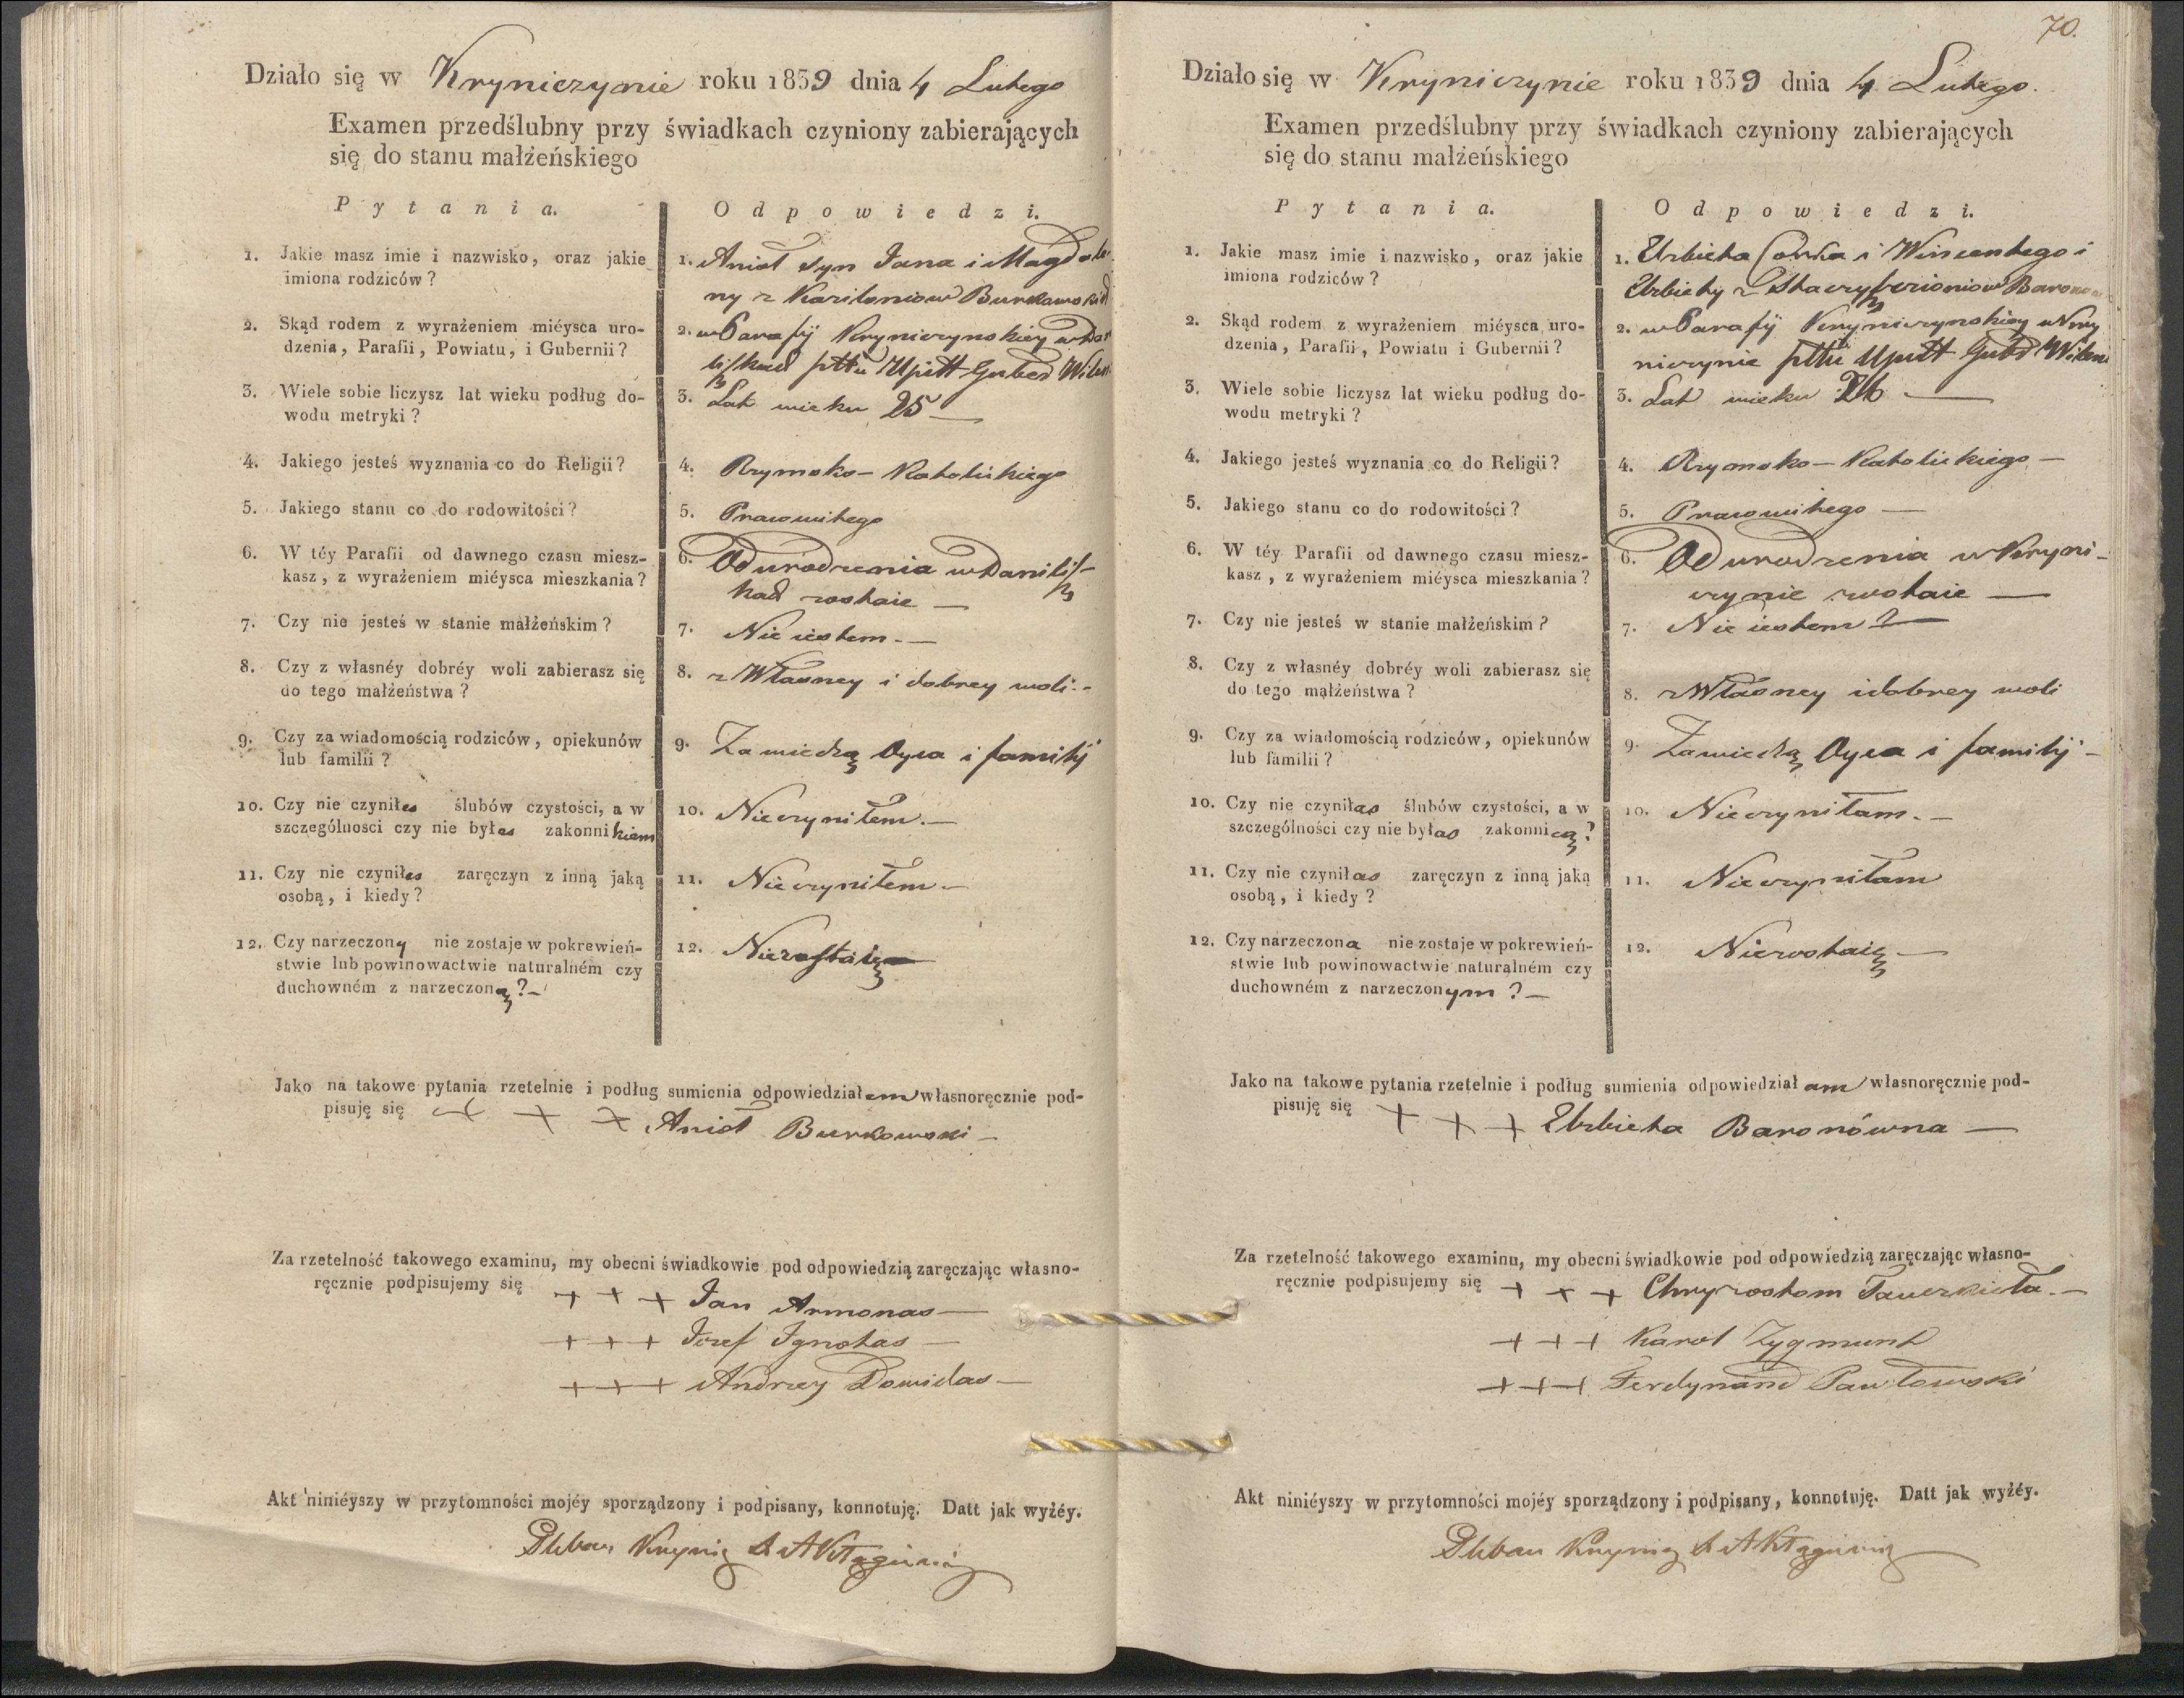 Działo się w Kryniczynie roku 1839 dnia 4 Lutego
Examen przedślubny przy świadkach czyniony zabierających
się do stanu małżeńskiego
Pytania.
Odpowiedzi.
1. Jakie masz imie i nazwisko, oraz jakie
imiona rodziców?
1. Anioł syn Jana i Magdale-
ny z
2. Skąd rodem z wyrażeniem miéysca uro-
dzenia, Parafii, Powiatu, i Gubernii?
2. w Parafij Kryniczynskiey w Dani
liszkach pttu Upitt Guber Wilen
3. Wiele sobie liczysz lat wieku podług do-
wodu metryki?
3. Lat wieku 25 —
4. Jakiego jesteś wyznania co do Religii?
4. Rzymsko - Katolickiego
5. Jakiego stanu co do rodowitości?
5. Pracowitego
6. W téy Parafii od dawnego czasu miesz-
kasz, z wyrażeniem miéysca mieszkania?
6. Od urodzenia w Danilisz-
kach zostaie —
7. Czy nie jesteś w stanie małżeńskim?
7. Nie iestem. —
8. Czy z własnéy dobréy woli zabierasz się
do tego małżeństwa?
8. z Własney i dobrey woli. -
9. Czy za wiadomością rodziców, opiekunów
lub familii?
9. Za wiedzą Oyca i familij
10. Czy nie czyniłes ślubów czystości, a w
szczególnosci czy nie byłes zakonnikiem
10. Nieczyniłem. —
11. Czy nie czyniłes zaręczyn z inną jaką
osobą, i kiedy?
11. Nieczyniłem —
12. Czy narzeczony nie zostaje w pokrewień-
stwie lub powinowactwie naturalném czy
duchowném z narzeczoną? —
12. Niezostaię —
Jako na takowe pytania rzetelnie i podług sumienia odpowiedziałem własnoręcznie pod-
pisuję się + + + Anioł Burkowski —
Za rzetelność takowego examinu, my obecni świadkowie pod odpowiedzią zaręczając własno-
ręcznie podpisujemy się + + + Jan Armonas —
+ + + Józef Ignotas —
+ + + Andrzey Dowidas —
Akt niniéyszy w przytomności mojéy sporządzony i podpisany, konnotuję. Datt jak wyżéy.
Pleban
70.
Działo się w Kryniczynie roku 1839 dnia 4 Lutego.
Examen przedślubny przy świadkach czyniony zabierających
się do stanu małżeńskiego
Pytania.
Odpowiedzi.
1. Jakie masz imie i nazwisko, oraz jakie
imiona rodziców?
1. Elzbieta Corka i Wincentego i
Elzbiety z
2. Skąd rodem z wyrażeniem miéysca uro-
dzenia, Parafii, Powiatu i Gubernii?
2. w Parafij Kryniczynskiey w Kry
niczynie pttu Upitt Gub Wilen
3. Wiele sobie liczysz lat wieku podług do-
wodu metryki?
3. Lat wieku 26 —
4. Jakiego jesteś wyznania co do Religii?
4. Rzymsko - Katolickiego —
5. Jakiego stanu co do rodowitości?
5. Pracowitego —
6. W téy Parafii od dawnego czasu miesz-
kasz, z wyrażeniem miéysca mieszkania?
6. Od urodzenia w Kryni-
czynie zostaie —
7. Czy nie jesteś w stanie małżeńskim?
7. Nie iestem —
8. Czy z własnéy dobréy woli zabierasz się
do tego małżeństwa?
8. z Własney i dobrey woli
9. Czy za wiadomością rodziców, opiekunów
lub familii?
9. Za wiedzą Oyca i familij —
10. Czy nie czyniłas ślubów czystości, a w
szczególności czy nie byłas zakonnicą?
10. Nieczyniłam. —
11. Czy nie czyniłas zaręczyn z inną jaką
osobą, i kiedy?
11. Nieczyniłam
12. Czy narzeczona nie zostaje w pokrewień-
stwie lub powinowactwie naturalném czy
duchowném z narzeczonym? —
12. Niezostaię —
Jako na takowe pytania rzetelnie i podług sumienia odpowiedziałam własnoręcznie pod-
pisuję się + + + Elzbieta Baronówna —
Za rzetelność takowego examinu, my obecni świadkowie pod odpowiedzią zaręczając własno-
ręcznie podpisujemy się + + + Chryzostom
+ + + Karol Zygmunt
+ + + Ferdynand Pawłowski
Akt niniéyszy w przytomności mojéy sporządzony i podpisany, konnotuję. Datt jak wyżéy.
Pleban